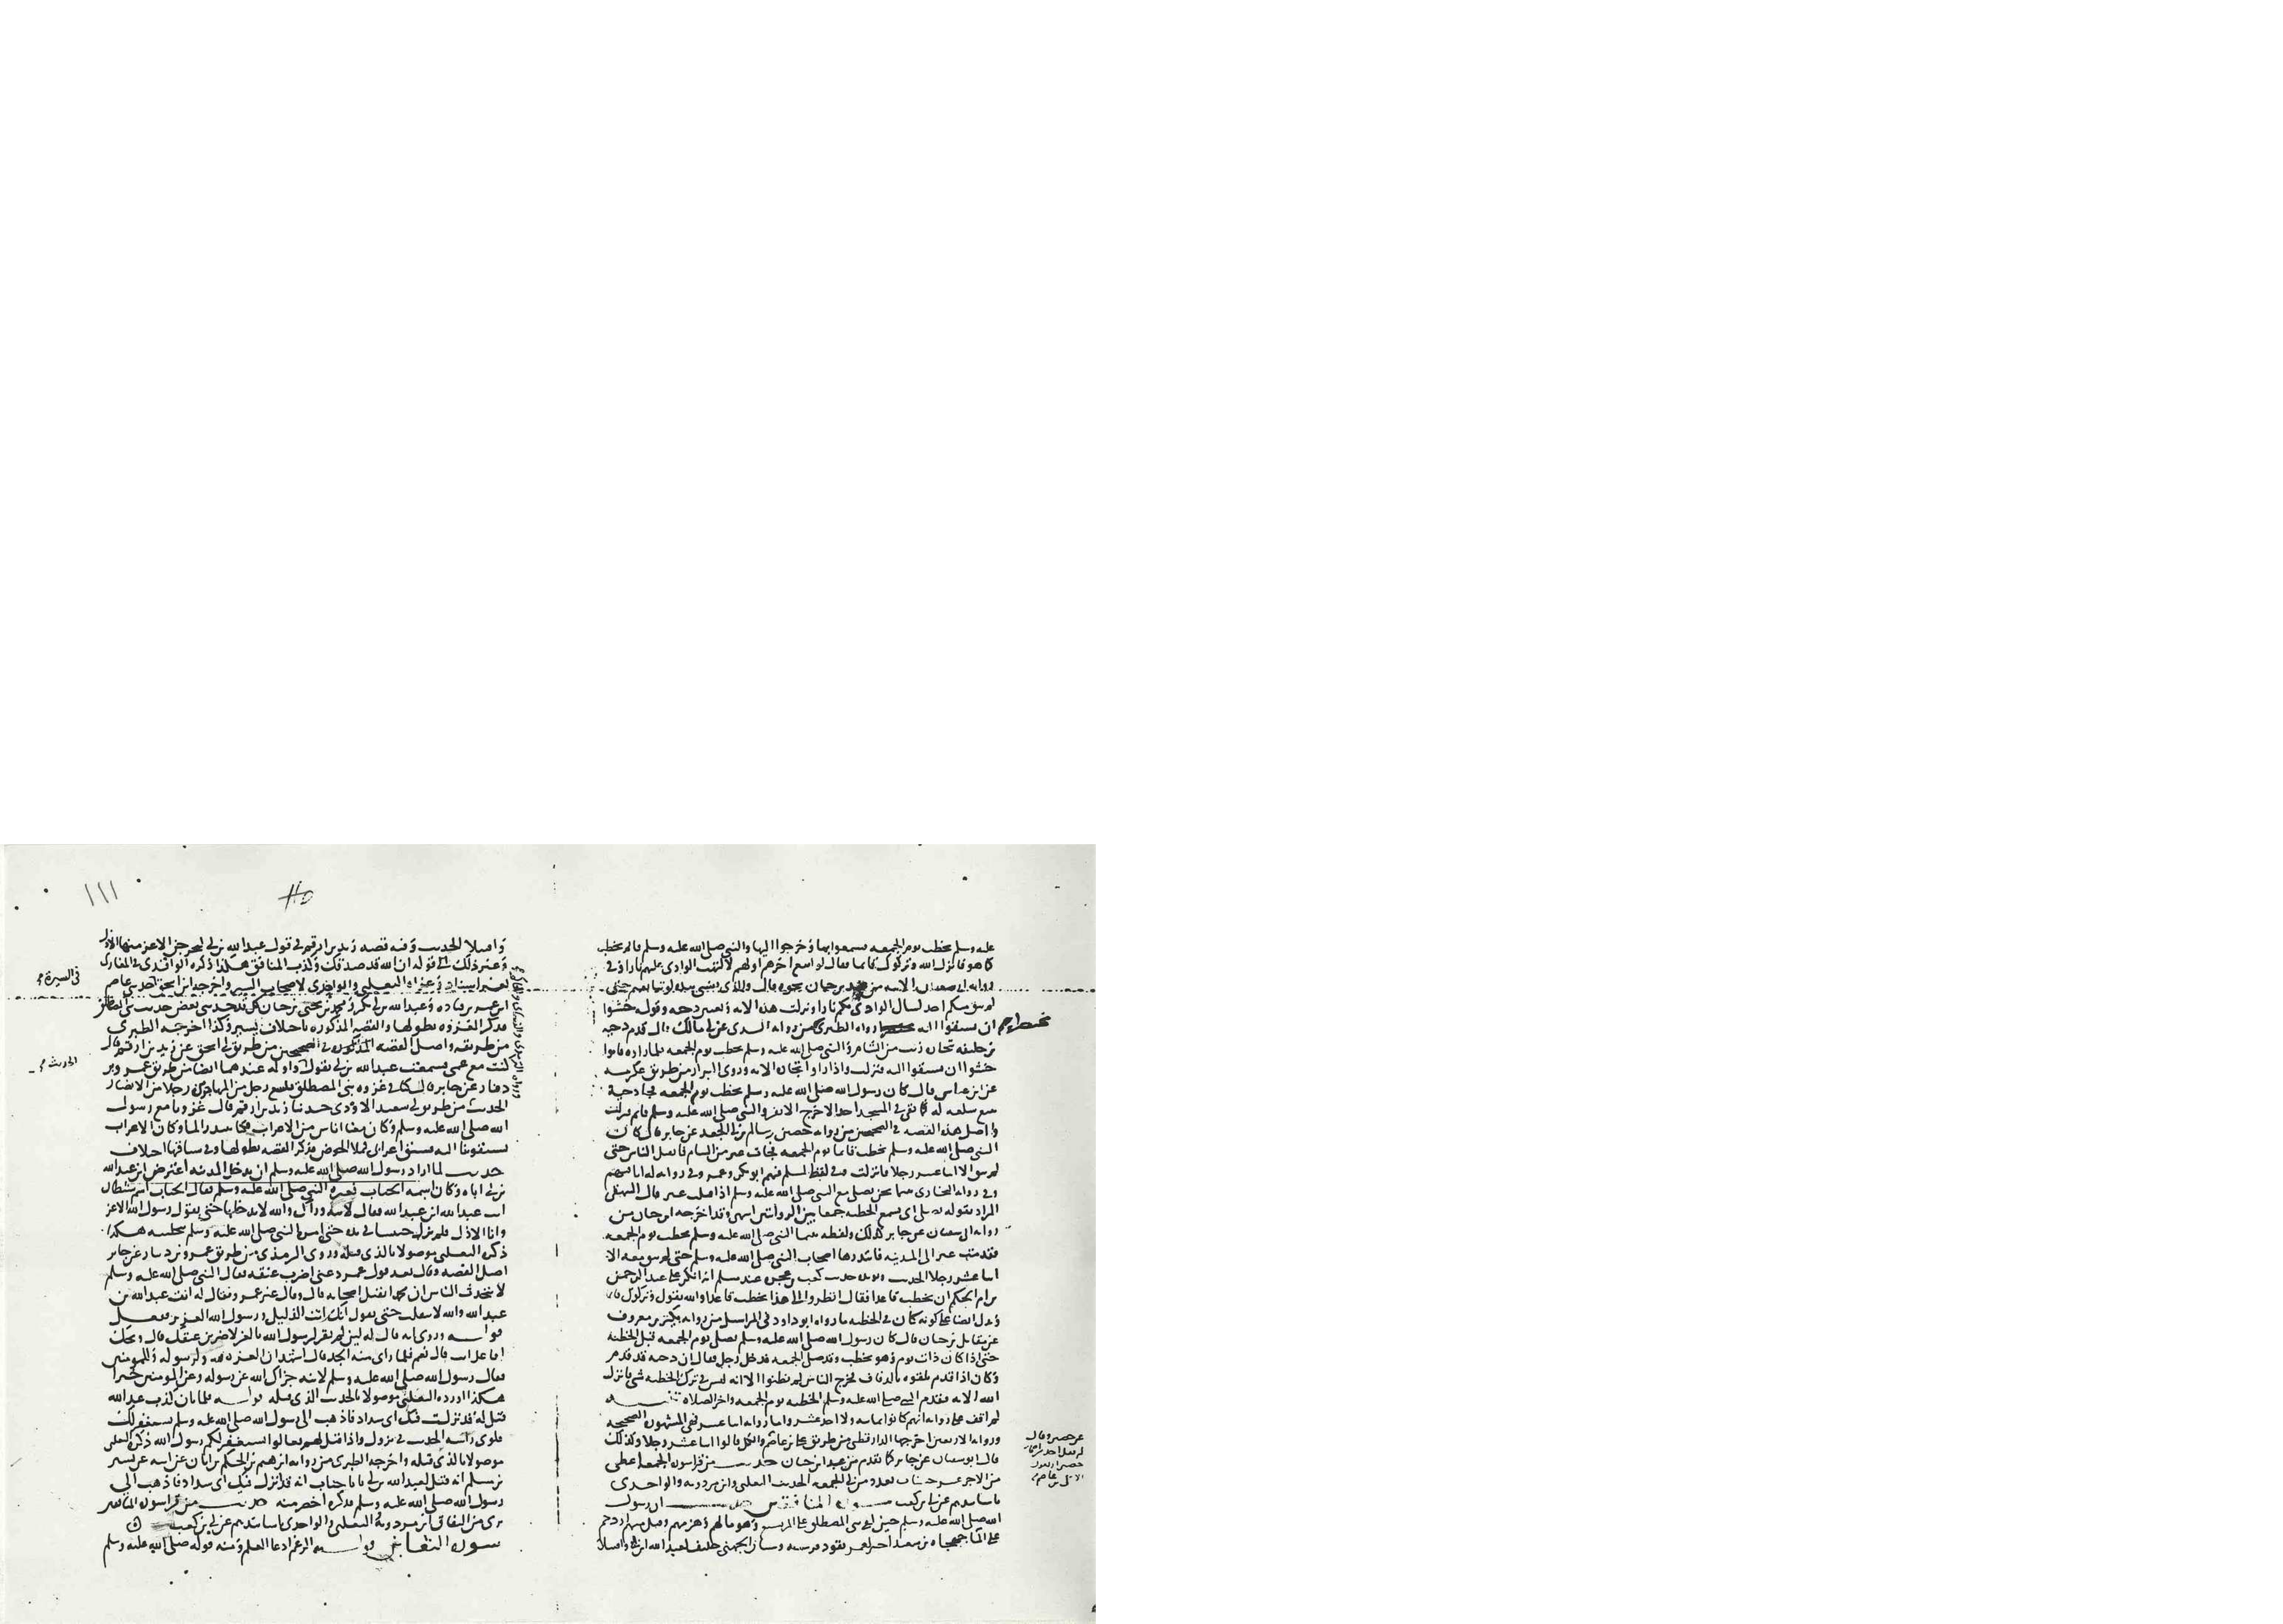 عليه وسلم يخطب يوم الجمعة فسمعوا بها وخرجوا اليها والنبي صلى الله عليه وسلم قائم يخطب
كما هو فانزل الله وتركوك قائما فقال لو اتبع اخرهم اولهم لالتهب الوادي عليهم نارا وفي
لم يبق منكم احد لسال الوادي بكم نارا ونزلت هذه الايه
ان يسبقوا اليه رواه الطبري من روايه السدي عن ابي مالك قال قدم دحيه
بن خليفه بتجاره زيت من الشام والنبي صلى الله عليه وسلم يخطب يوم الجمعه فلما راوه قاموا
خشوا ان يسبقوا اليه فنزلت واذا راوا تجاره الايه وروى البزار من طريق عكرمه
عن ابن عباس قال كان رسول الله صلى الله عليه وسلم يخطب يوم الجمعه فجا دحية
يبيع سلعه له فما بقي في المسجد احد الا خرج الا نفر والنبي صلى الله عليه وسلم قائم فنزلت
واصل هذه القصه في الصحيحين من روايه حصين سالم بن ابي الجعد عن جابر قال كان
النبي صلى الله عليه وسلم يخطب قائما يوم الجمعه فجات عير من الشام فانفتل الناس حتى
لم يبق الا اثنا عشر رجلا فانزلت وفي لفظ لمسلم فيهم ابو بكر وعمر وفي روايه له انا فيهم
وفي روايه البخاري بينما نحن نصلي مع النبي صلى الله عليه وسلم اذ اقبلت عير قال البيهقي
المراد بقوله نصلي اي نسمع الخطبه جمعا بين الروايتين انتهى وقد اخرجه ابن حبان من
روايه ابي سفيان عن جابر كذلك ولفظه بينما النبي صلى الله عليه وسلم يخطب يوم الجمعه
فقدمت عير الى المدينه فابتدرها اصحاب النبي صلى الله عليه وسلم حتى لم يبق معه الا
اثنا عشر رجلا الحديث حديث كعب بن عجره عند مسلم انه انكر على عبد الرحمن
بن ام الحكم ان يخطب قاعدا فقال انظروا الى هذا يخطب قاعدا والله يقول وتركوك قائما
كونه كان في الخطبه ما رواه ابو داود في المراسيل من روايه بكير بن معروف
عن مقاتل بن حيان قال كان رسول الله صلى الله عليه وسلم يصلي يوم الجمعه قبل الخطبه
حتى اذا كان ذات يوم وهو يخطب وقد صلى الجمعه فدخل رجل فقال ان دحيه قد قدم
وكان اذا قدم تلقوه بالدفاف فخرج الناس لم يظنوا الا انه ليس في ترك الخطبه شي فانزل
الله الايه فقدم النبي صلى الله عليه وسلم الخطبه يوم الجمعه واخر الصلاه تنبيه
لم اقف على روايه انهم كانوا ثمانيه ولا احد عشر واما روايه اثنا عشر فهي المشهوره الصحيحه
وروايه الاربعين اخرجها الدارقطني من طريق علي بن عاصم والكل قالوا اثنا عشر رجلا وكذلك
قال ابو سفيان عن جابر كما تقدم من عند ابن حبان حديث من قرا سوره الجمعه اعطي
من الاجر عشر حسنات بعدد من اتى الجمعه الحديث الثعلبي وابن مردويه والواحدي
باسانيدهم عن ابي بن كعب سوره المنافقين حديث ان رسول
الله صلى الله عليه وسلم حين لقي بني المصطلق على المريسيع وهو ما لهم وهزمهم وقتل منهم ازدحم
على الما جهجاه بن سعيد اجير لعمر يقود فرسه وسنان الجهني حليف لعبد الله ابن ابي واقتتلا
عن حصين وقال
واصلا الحديث وفيه قصه زيد بن ارقم في قول عبد الله بن ابي ليخرجن الاعز منها الاذل
وغير ذلك الى قوله ان الله قد صدقك وكذب المنافقين هكذا ذكره الواقدي في المغازي
بغير اسناد وعزاه الثعلبي والواحدي لاصحاب السير واخرجه ابن اسحق حدثني عاصم
ابن عمر بن قتاده وعبد الله بن ابي بكر ومحمد بن يحيى بن حبان كل قد حدثني بعض حديث بني المصطلق
فذكر الغزوه بطولها والقصه المذكوره باختلاف يسير وكذا اخرجه الطبري
من طريقه واصل القصه في الصحيحين من طريق ابي اسحق عن زيد بن ارقم قال
كنت مع عمي فسمعت عبد الله بن ابي يقول عندهما ايضا من طريق عمرو بن
دينار عن جابر قال كنا في غزوه بني المصطلق فكسع رجل من المهاجرين رجلا من الانصار
الحديث من طريق ابي سعيد الازدي حدثنا زيد بن ارقم قال غزونا مع رسول
الله صلى الله عليه وسلم وكان معنا اناس من الاعراب فكنا نبتدر الما وكان الاعراب
يسبقوننا اليه فسبق اعرابي فملا الحوض فذكر القصه بطولها وفي سياقها اختلاف
حديث لما اراد رسول الله صلى الله عليه وسلم ان يدخل المدينه اعترض ابن عبد الله
بن ابي اباه وكان اسمه الحباب فغيره النبي صلى الله عليه وسلم فقال الحباب اسم شيطان
انت عبد الله ابن عبد الله فقال لابيه وراك والله لا تدخلها حتى تقول رسول الله الاعز
وانا الاذل فلم يزل حبيسا في يده حتى امره النبي صلى الله عليه وسلم بتخليته هكذا
ذكره الثعلبي موصولا بالذي قبله وروى الترمذي من طريق عمرو بن دينار عن جابر
اصل القصه وقال بعد قول عمر دعني اضرب عنقه فقال النبي صلى الله عليه وسلم
لا يتحدث الناس ان محمدا يقتل اصحابه قال وقال غير عمرو فقال له ابنه عبد الله بن
عبد الله والله لا تنقلب حتى تقول انك انت الذليل ورسول الله العزيز ففعل
قوله وروي انه قال له لين لم تقر لرسول الله بالعز لاضربن عنقك قال ويحك
افاعل انت قال نعم فلما راى منه الجد قال اشهد ان العزه لله ولرسوله وللمومنين
فقال رسول الله صلى الله عليه وسلم لابنه جزاك الله عن رسوله وعن المومنين خيرا
هكذا اورده الثعلبي موصولا بالحديث الذي قبله قوله فلما بان كذب عبد الله
قيل له قد نزلت فيك اي شداد فاذهب الى رسول الله صلى الله عليه وسلم يستغفر لك
فلوى راسه الحديث في نزول واذا قيل لهم تعالوا يستغفر لكم رسول الله ذكره الثعلبي
موصولا بالذي قبله واخرجه الطبري من روايه ابراهيم بن الحكم بن ابان عن ابيه عن بشير
بن مسلم انه قيل لعبد الله بن ابي يا ابا حباب انه قد انزل فيك اي شداد فاذهب الى
رسول الله صلى الله عليه وسلم فذكره اخصر منه حديث من قرا سوره المنافقين
بري من النفاق ابن مردويه الثعلبي والواحدي باسانيدهم عن ابي بن كعب
سوره التغابن قوله الزعم ادعا العلم ومنه قوله صلى الله عليه وسلم
في السيرة
الحديث
١١١